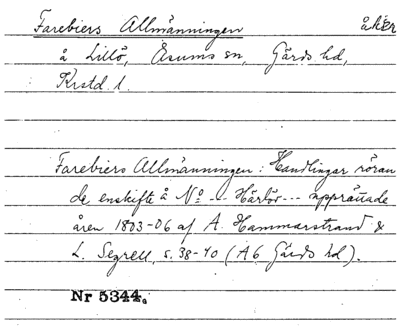 Farebiers Allmänningen åker
å Lillö, Åsums sn, Gärds hd,
Krstd. l.
Farebiers Allmänningen: Handlingar röran
de enskifte å No --- Härlöv --- upprättade
åren 1803-06 af A. Hammarstrand &
L. Segrell, s. 38-40 (A6 Gärds hd).
Nr 5344.